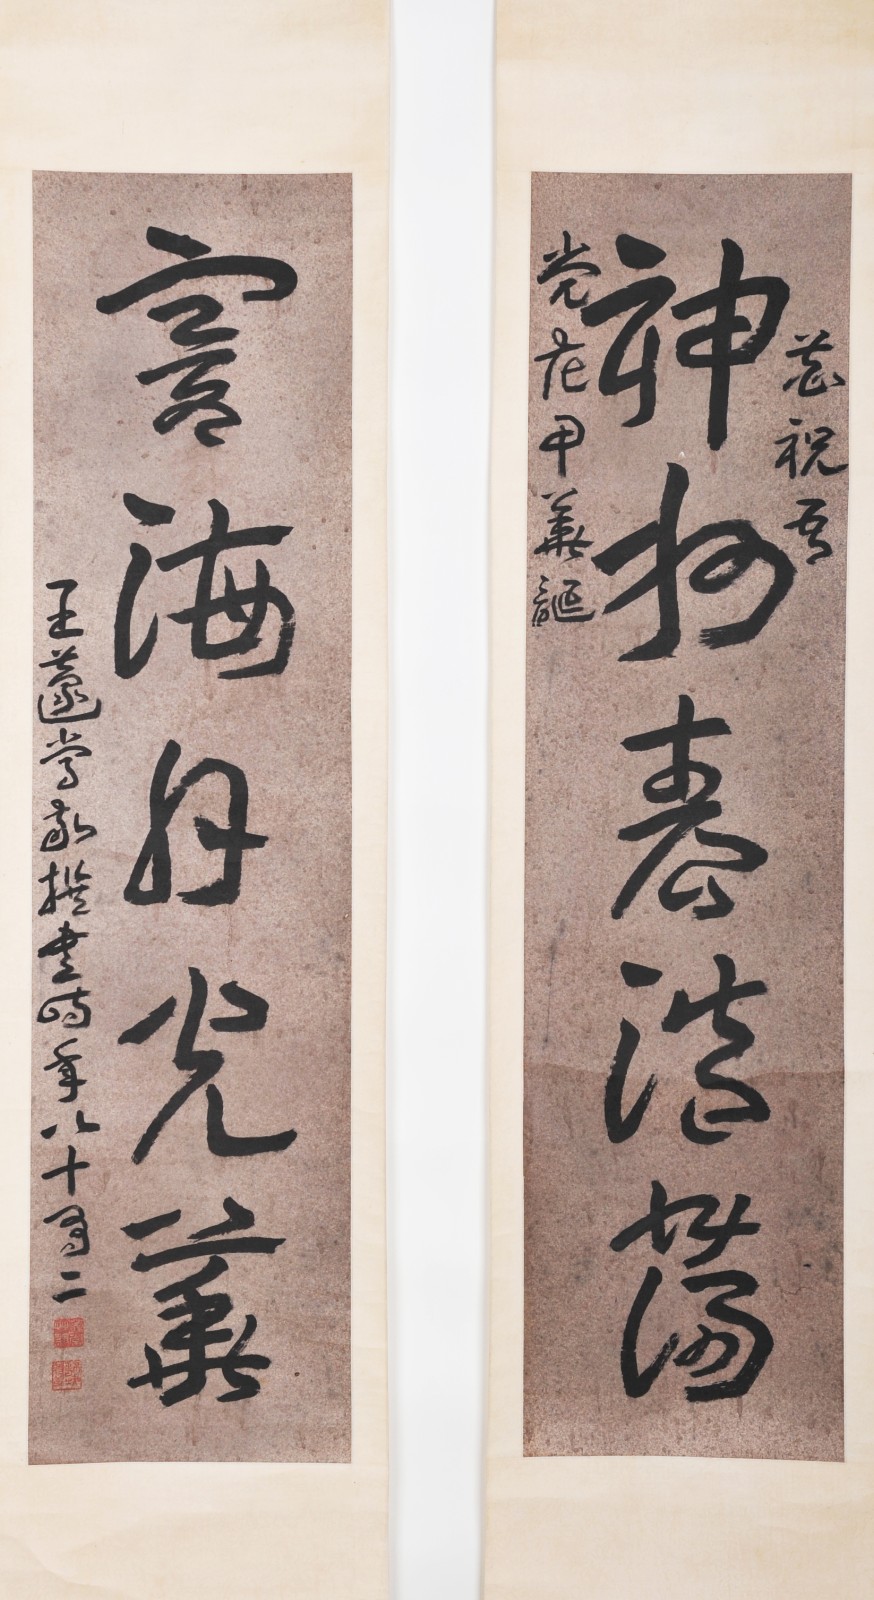 恭祝吾
神州春浩蕩
党花甲華誕
寰海月光華
王蘧常敬撰書時年八十有二